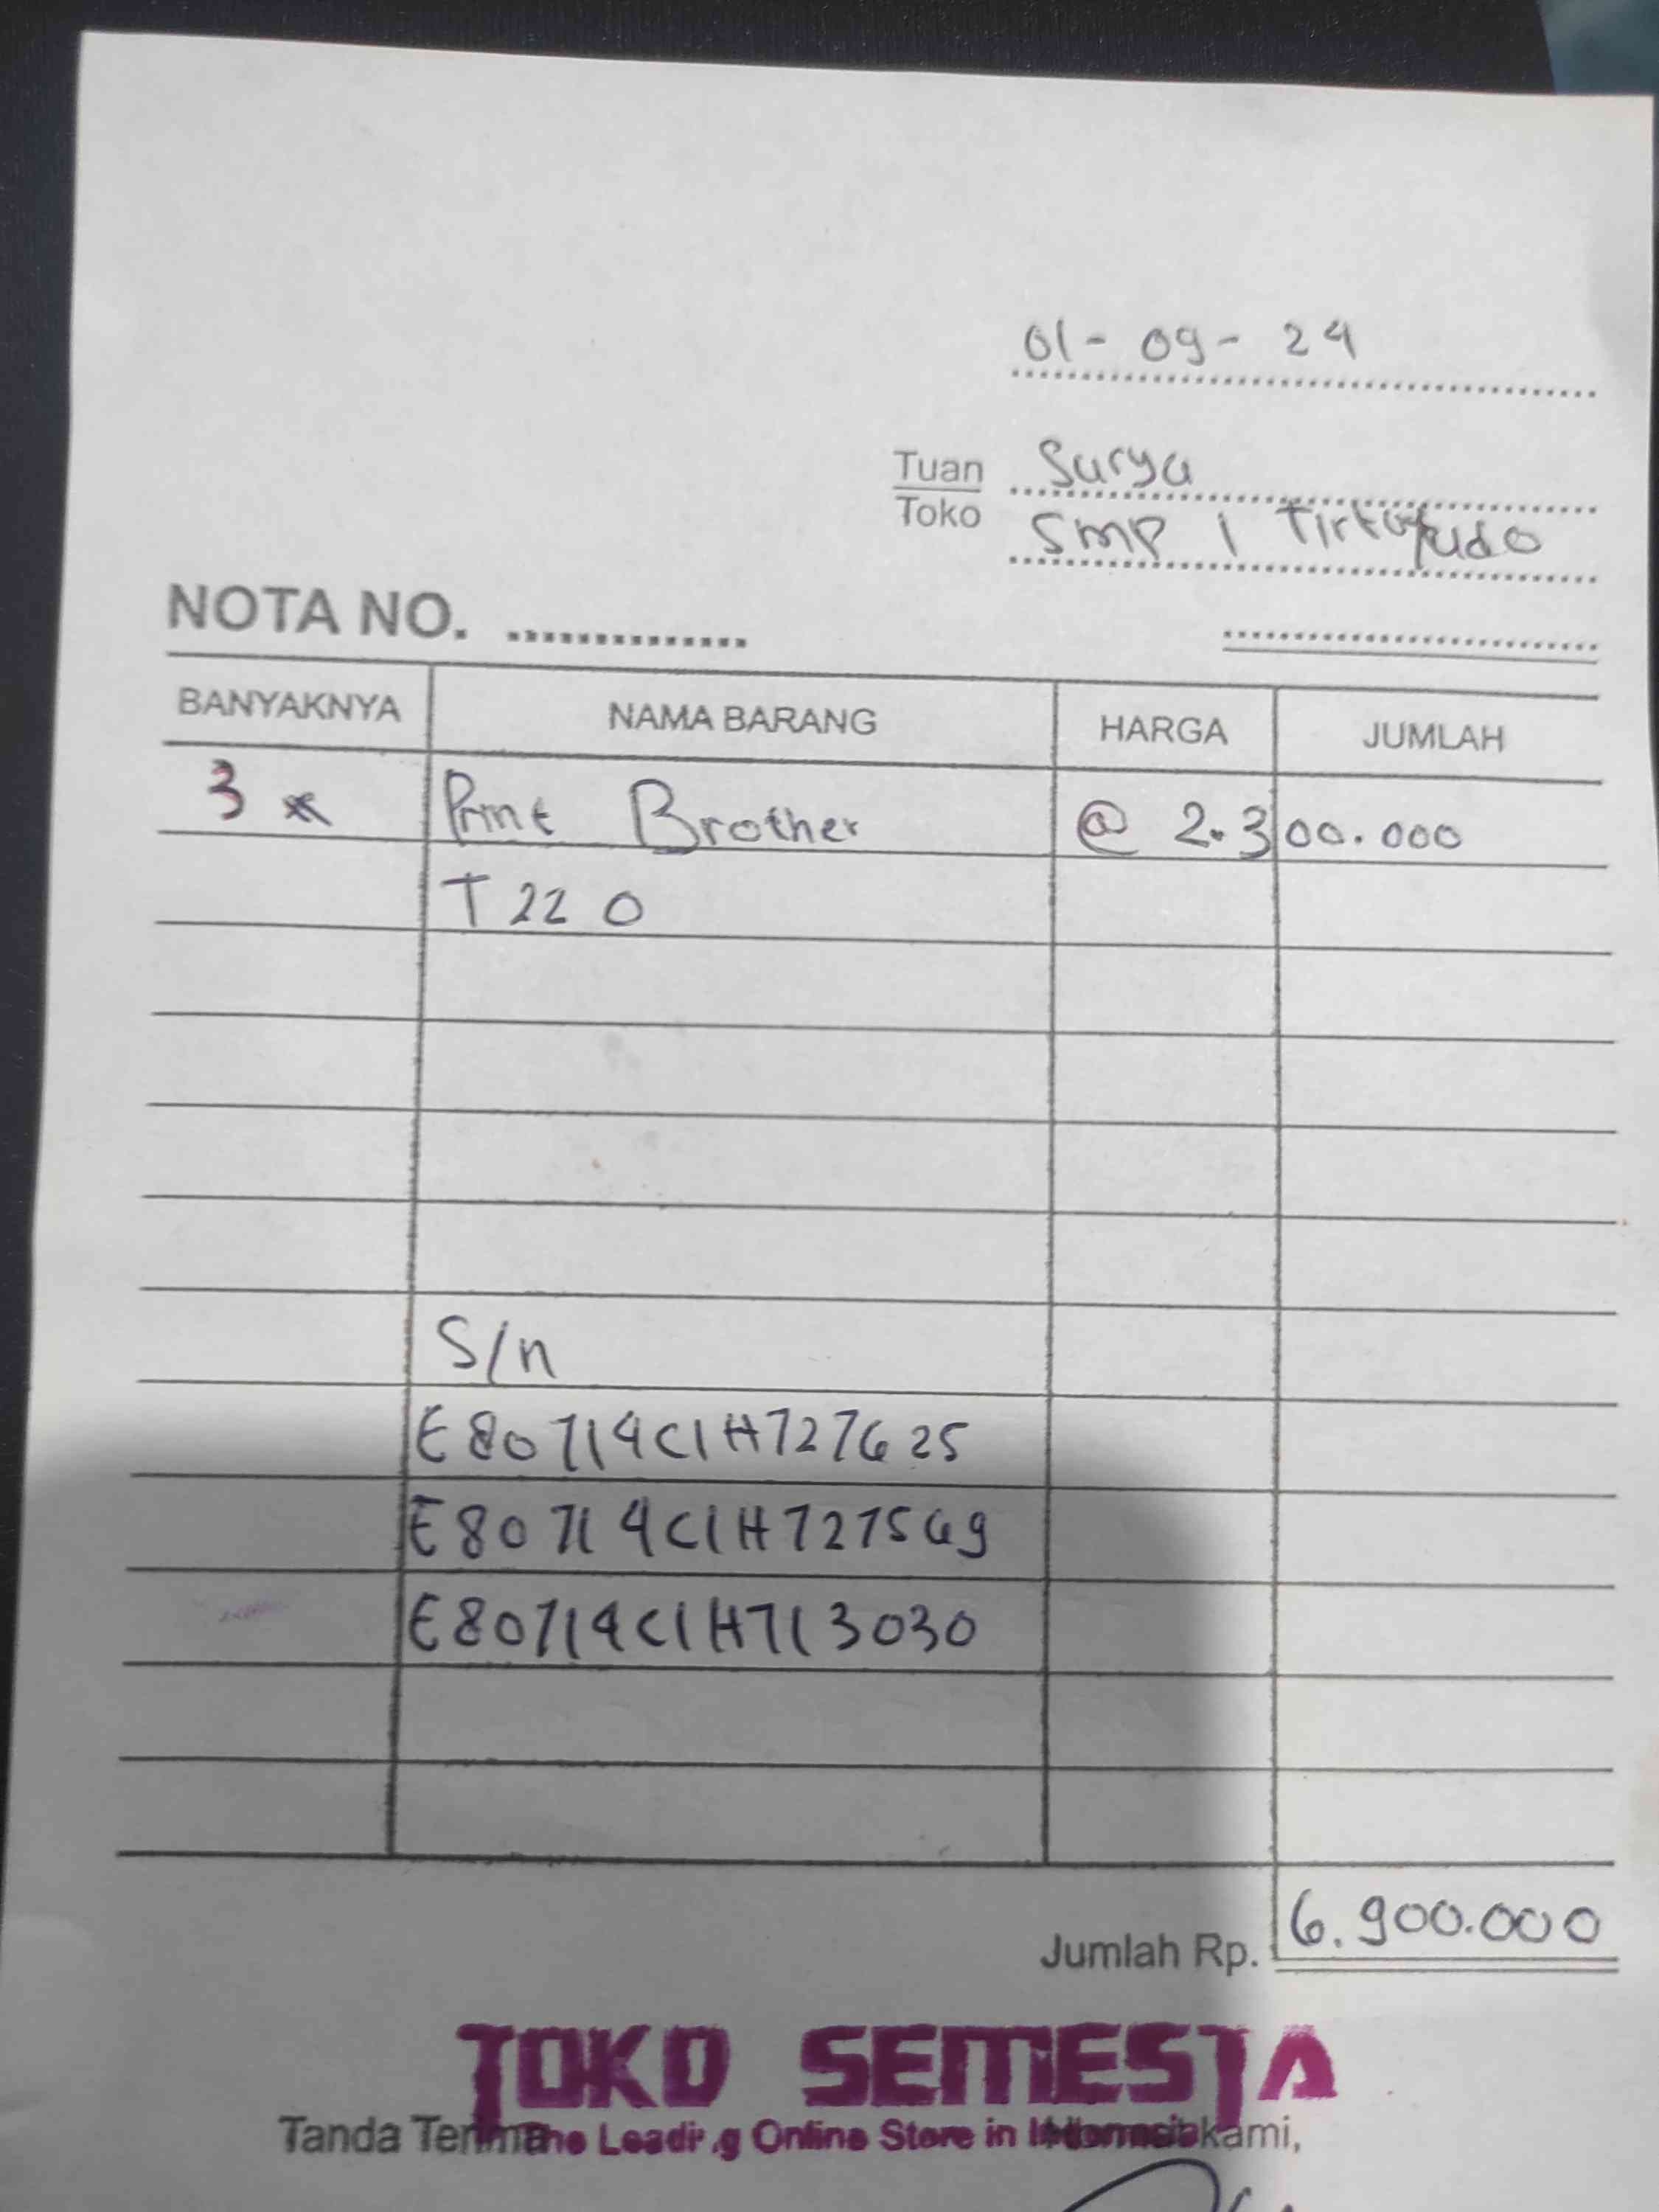 01 - 09 - 24
Tuan Surya
Toko SMP 1 Tirtoyudo
NOTA NO.
BANYAKNYA NAMA BARANG HARGA JUMLAH
3 x Print Brother @ 2.300.000
T 220
S/n
E80714C1H727625
E80714C1H727569
E80714C1H713030
Jumlah Rp. 6.900.000
TOKO SEMESTA
The Leading Online Store in Indonesia
Tanda Terima Hormat kami,